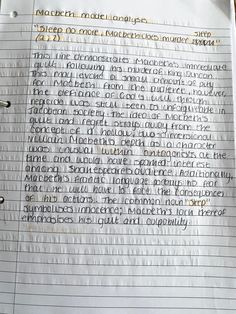 Macbeth model analysis
"Sleep no more, Macbeth does murder sleep"
(2;2)
This line demonstrates Macbeth's immediate
guilt following his murder of King Duncan.
This may evoke a small amount of pity
for Macbeth from the audience, however,
the difference of God's will through
regicide was still seen to unforgivable in
Jacobean society. The idea of Macbeth's
guilt and regret strays away from the
concept of a hollow, two-dimensional
villain. Macbeth's depth as a character
was unusual within antagonists at the
time and would have sparked interest
among Shakespeare's audience. Additionally,
Macbeth's frantic language portrays his fear
that he will have to face the consequences
of his actions. The common noun "sleep"
symbolises innocence; Macbeth's lack thereof
emphasises his guilt and culpability.